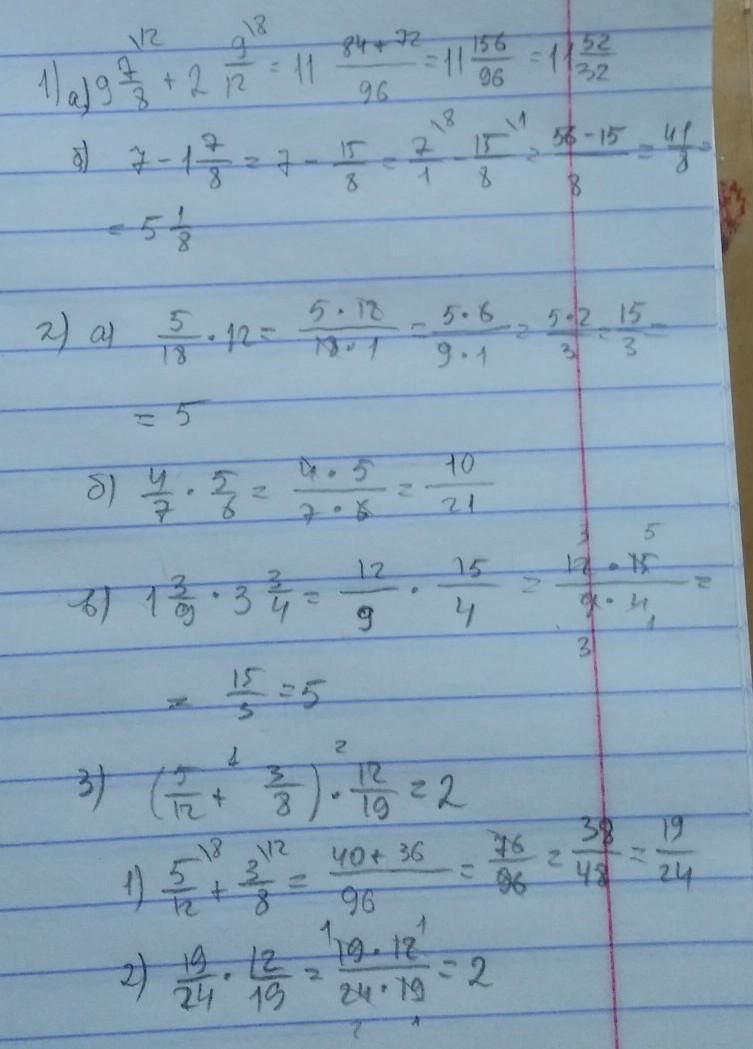 1) а) 9 7/8 \12 + 2 9/12 \8 = 11 84+72/96 = 11 156/96 = 11 52/32
б) 7 - 1 7/8 = 7 - 15/8 = 7/1 \8 - 15/8 \1 = 56-15/8 = 41/8 =
= 5 1/8
2) а) 5/18 · 12 = 5·12/18·1 = 5·6/9·1 = 5·2/3 = 15/3 =
= 5
б) 4/7 · 5/6 = 4·5/7·6 = 10/21
в) 1 3/9 · 3 3/4 = 12/9 · 15/4 = 12·15/9·4 =
= 15/3 = 5
3) (5/12 + 3/8) · 12/19 = 2
1) 5/12 \8 + 3/8 \12 = 40+36/96 = 76/96 = 38/48 = 19/24
2) 19/24 · 12/19 = 19·12/24·19 = 2